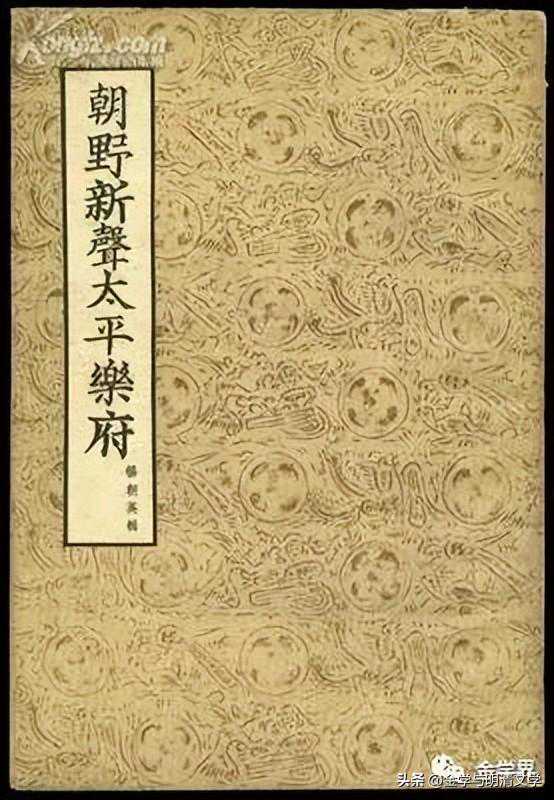 Kongfz.com
朝野新聲太平樂府
楊朝英輯
金学界
头条 @金学与明清文学